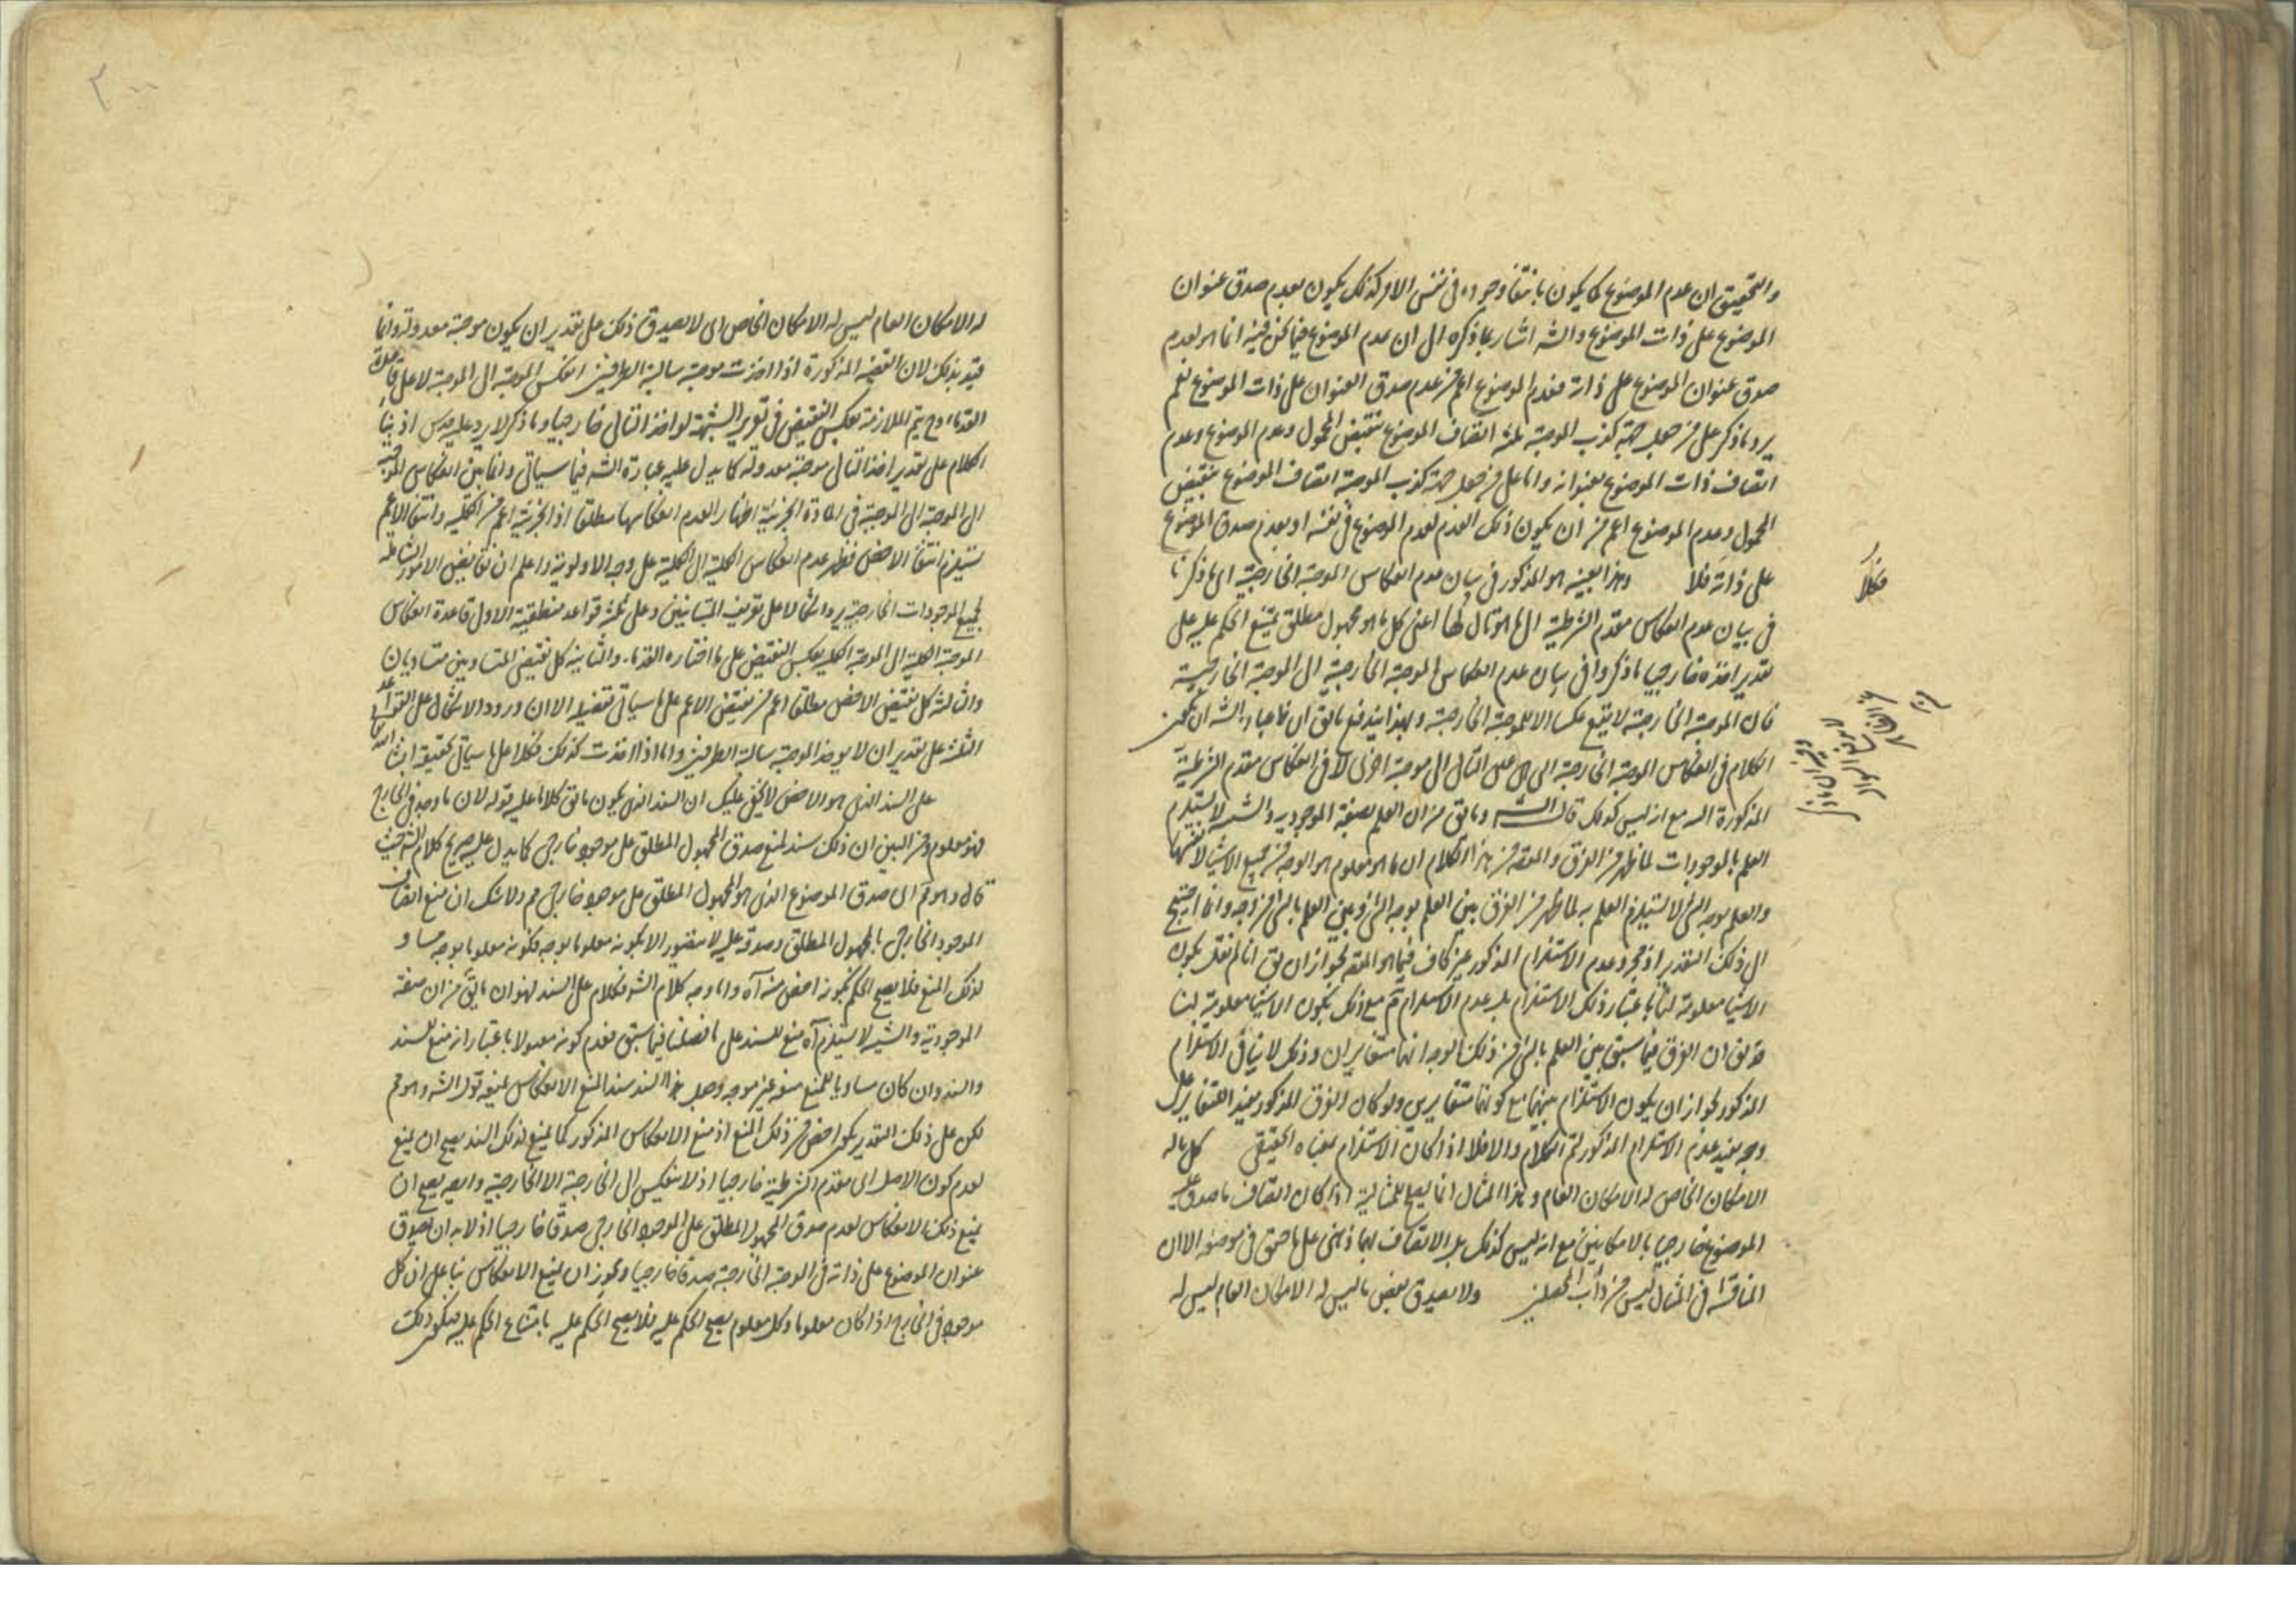 والتحقيق ان عدم الموضوع كما يكون بانتفاء وجوده في نفس الامر كذلك يكون بعدم صدق عنوان
الموضوع على ذات الموضوع والشه اشار بما ذكره الى ان عدم الموضوع فيما نحن فيه انما هو لعدم
صدق عنوان الموضوع على ذاته فعدم الموضوع اعم من عدم صدق العنوان على ذات الموضوع نعم
يرد ما ذكر على من جعل جهة كذب الموجبة ثلثة اتصاف الموضوع بنقيض المحمول وعدم الموضوع وعدم
اتصاف ذات الموضوع بعنوانه واما على من جعل جهة كذب الموجبة اتصاف الموضوع بنقيض
المحمول وعدم الموضوع اعم من ان يكون ذلك العدم لعدم الموضوع في نفسه او بعدم صدق الموضوع
على ذاته فلا وهذا بعينه هو المذكور في بيان عدم انعكاس الموجبة الخارجية اى ما ذكرنا
في بيان عدم انعكاس مقدم الشرطية الى ما هو تال لها اعنى كل ما هو مجهول مطلق يمتنع الحكم عليه على
تقدير اخذه خارجيا ما ذكروا في بيان عدم انعكاس الموجبة الخارجية الى الموجبة الخارجية
فان الموجبة الخارجية لا يقع عكسا الا للموجبة الخارجية وبهذا يندفع ما يق ان
الكلام في انعكاس الموجبة الخارجية الى التالى الى موجبة اخرى لا في انعكاس مقدم الشرطية
المذكورة اليه مع انه ليس كذلك قال الشه وما يق من ان العلم بصفة الموجودية والشيئية لا يستلزم
العلم بالموجودات لما ظهر من الفرق والمقصه من هذا الكلام ان ما هو معلوم هو الوجه من جميع الاشياء لا نفسها
والعلم بوجه الشئ لا يستلزم العلم به لما ظهر من الفرق بين العلم بوجه الشئ وبين العلم بالشئ من وجه وانما احتيج
الى ذلك التقدير اذ مجرد عدم الاستلزام المذكور غير كاف فيما هو المقصه لجواز ان يق انا لم نقل بكون
الاشياء معلومة لنا باعتبار ذلك الاستلزام بل عدم الاستلزام ثم مع ذلك يكون الاشياء معلومة لنا
فق ان الفرق فيما سبق بين العلم بالشئ من ذلك الوجه انهما متغايران وذلك لا ينافى الاستلزام
المذكور لجواز ان يكون الاستلزام بينهما مع كونهما متغايرين ولو كان الفرق المذكور مفيد التغاير على
وجه يفيد عدم الاستلزام المذكور لتم الكلام والا فلا اذا كان الاستلزام بمعناه الحقيقى كل ما له
الامكان الخاص له الامكان العام وهذا المثال انما يصلح للمثالية اذا كان اتصاف ما صدق عليه
الموضوع خارجيا بالامكانين مع انه ليس كذلك بل الاتصاف بهما ذهنى على ما حقق في موضعه الا ان
المناقشة في المثال ليس من دأب المحصلين ولا يصدق بعض ما ليس له الامكان العام ليس له
له الامكان العام ليس له الامكان الخاص اى لا يصدق ذلك على تقدير ان يكون موجبة معدولة وانما
قيد بذلك لان القضية المذكورة اذا اخذت موجبة سالبة الطرفين انعكس الموجبة الى الموجبة لا على قاعدة
القدماء وح يتم الملازمة بعكس النقيض في تقرير الشبهة لو اخذ التالى خارجيا وما ذكر لا يرد عليه اذ بناء
الكلام على تقدير اخذ التالى موجبة معدولة كما يدل عليه عبارة الشه فيما سياتى وانما بين انعكاس الموجبة
الى الموجبة الى الموجبة في المادة الجزئية اظهارا لعدم انعكاسها مطلقا اذ الجزئية اعم من الكلية وانتفاء الاعم
يستلزم انتفاء الاخص فظهر عدم انعكاس الكلية الى الكلية على وجه الاولوية واعلم ان نقايض الامور الشاملة
لجميع الموجودات الخارجية يرد اشكالا على تعريف المتباينين وعلى ثلثة قواعد منطقية الاول قاعدة انعكاس
الموجبة الكلية الى الموجبة الكلية بعكس النقيض على ما اختاره القدماء والثانية كل نقيض المتساويين متساويان
والثالثة كل نقيض الاخص مطلقا اعم من نقيض الاعم على ما سياتى تفصيله الا ان ورود الاشكال على القواعد
الثلث على تقدير ان لا يوخذ الموجبة سالبة الطرفين واما اذا اخذت كذلك فلا على ما سياتى تحقيقه
على السند الذى هو الاخص لا يخفى عليك ان السند الذى يكون ما يق كلاما عليه قوله لان ما وجد في الخارج
فهو معلوم ومن البين ان ذلك سند لمنع صدق المجهول المطلق على موجود خارجى كما يدل عليه صريح كلام الشه حيث
قال وهو مم اى صدق الموضوع الذى هو المجهول المطلق على موجود خارجى مم ولا شك ان منع اتصاف
الموجود الخارجى بالمجهول المطلق وصدقه عليه لا يتصور الا بكونه معلوما بوجه فكونه معلوما بوجه مساو
لذلك المنع فلا يصح الحكم بكونه اخص منه آه واما وجه كلام الشه فكلام على السند لهو ان ما يق من ان صفة
الموجودية والشيئية لا يستلزم آه منع للسند على ما فصلنا فيما سبق فعدم كونه مقبولا باعتبار انه منع للسند
والسند وان كان مساويا للمنع منعه غير موجه وجعل هذا السند سندا لمنع الانعكاس يمنعه قول الشه وهو مم
لكن على ذلك التقدير يكون اخص من ذلك المنع اذ منع الانعكاس المذكور كما يمنع لذلك السند يصح ان يمنع
لعدم كون الاصل اى مقدم الشرطية خارجيا اذ لا ينعكس الى الخارجية الا الخارجية وايضه يصح ان
يمنع ذلك الانعكاس لعدم صدق المجهول المطلق على الموجود الخارجى صدقا خارجيا اذ لا بد ان يصدق
عنوان الموضوع على ذاته في الموجبة الخارجية صدقا خارجيا ويجوز ان يمنع الانعكاس بناء على ان كل
موجود في الخارج اذا كان معلوما وكل معلوم يصح الحكم عليه فلا يصح الحكم عليه بامتناع الحكم عليه فيكون ذلك